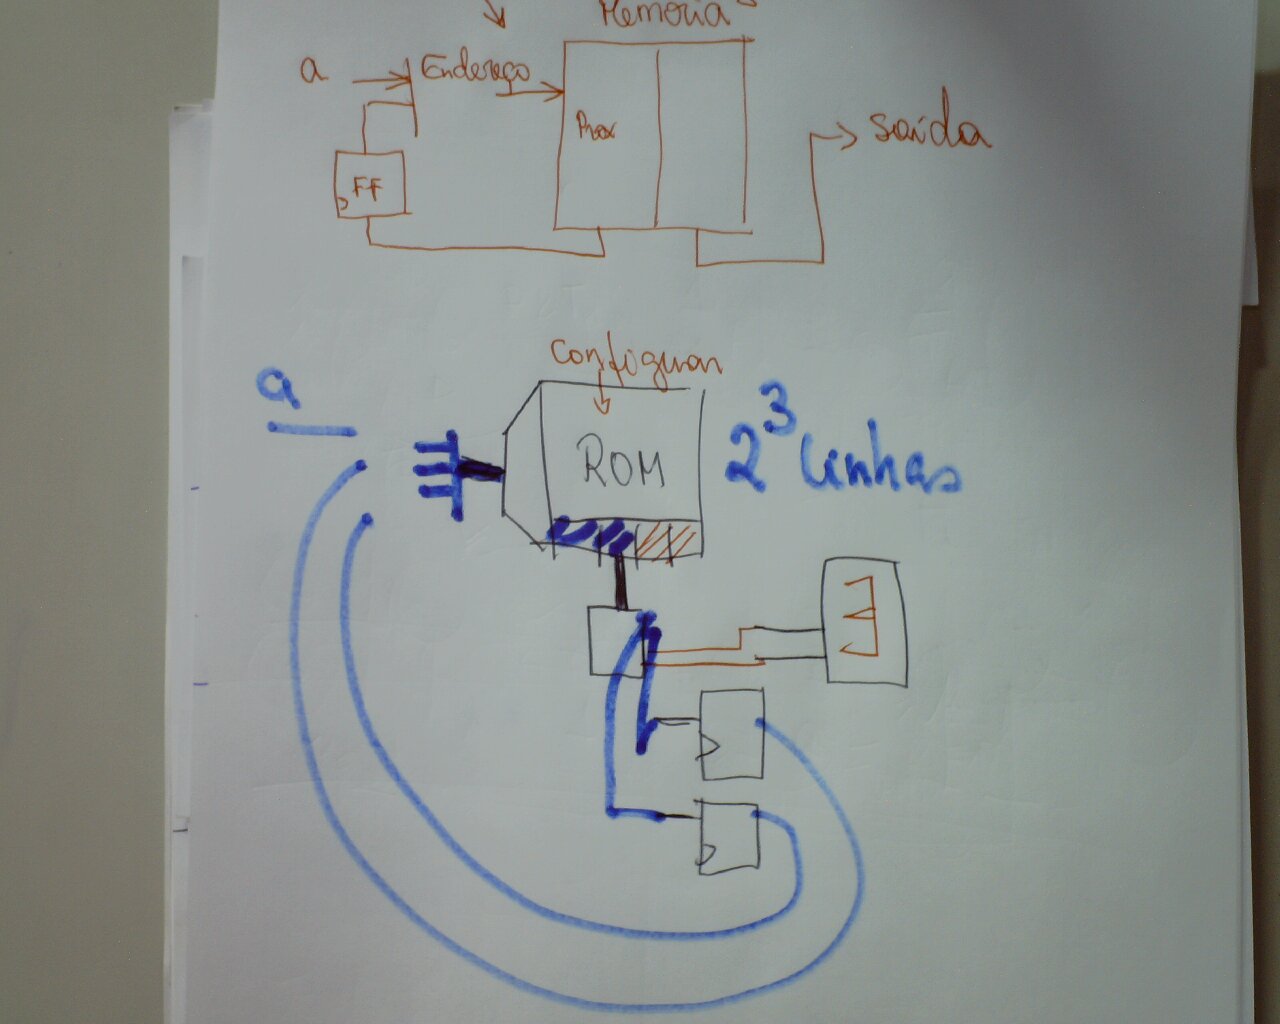 Memória
a
Endereço
Prox
FF
saída
Configurar
a
ROM
2³ linhas